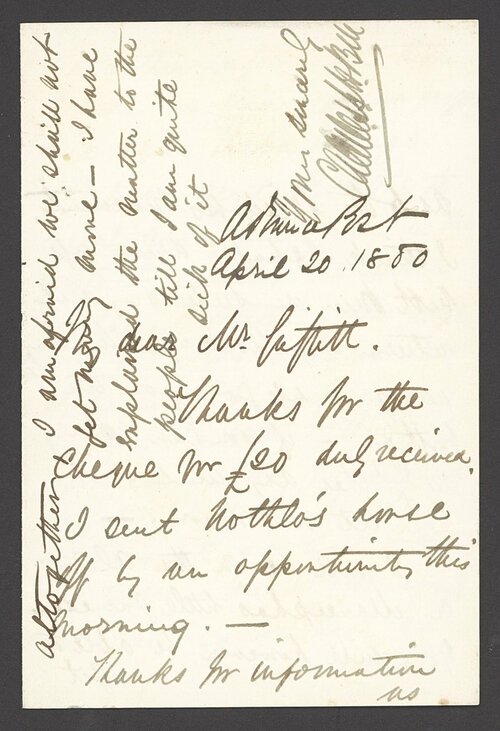 April 20. 1880
My dear Mr. Griffith.
Thanks for the
cheque for £20 duly received.
I sent Nothlo's horse
off by an opportunity this
morning. —
Thanks for information
as
altogether I am afraid we shall not
get many more — I have
explained the matter to the
people till I am quite
sick of it
Yours sincerely